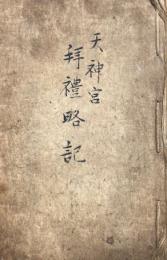 天神宮
拜禮略記